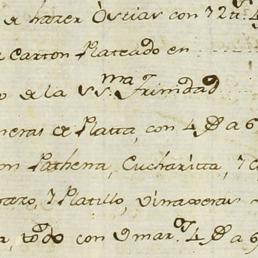 de hazer Ostias con 72 tt.s 4
e Carton Plateado en
o de la SS.ma Trinidad
neras de Platta, con 4 @ a 6
on Pathena, Cucharitta, 7 c
taro, 7 Platillo, Vinaxeras
a, todo con 9 mar.s 4 @ a 6